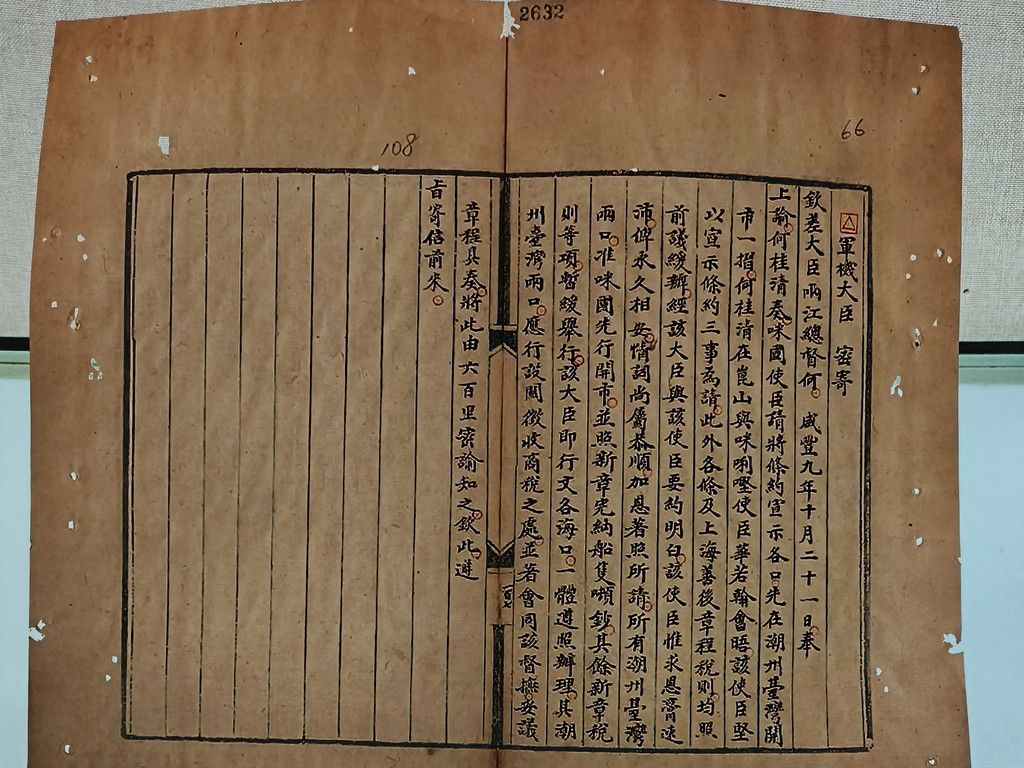 2632
66
108
軍機大臣 密寄
欽差大臣兩江總督何 咸豐九年十月二十一日奉
上諭何桂清奏咪國使臣請將條約宣示各口先在潮州臺灣開
市一摺何桂清在崑山與咪唎㘗使臣華若翰會晤該使臣堅
以宣示條約三事為請此外各條及上海善後章程稅則均照
前議緩辦經該大臣與該使臣要約明白該使臣惟求恩膏速
沛俾永久相安情詞尚屬恭順加恩著照所請所有潮州臺灣
兩口准咪國先行開市並照新章完納船隻噸鈔其餘新章稅
則等項暫緩舉行該大臣即行文各海口一體遵照辦理其潮
州臺灣兩口應行設關徵收商稅之處並著會同該督撫妥議
章程具奏將此由六百里密諭知之欽此遵
旨寄信前來